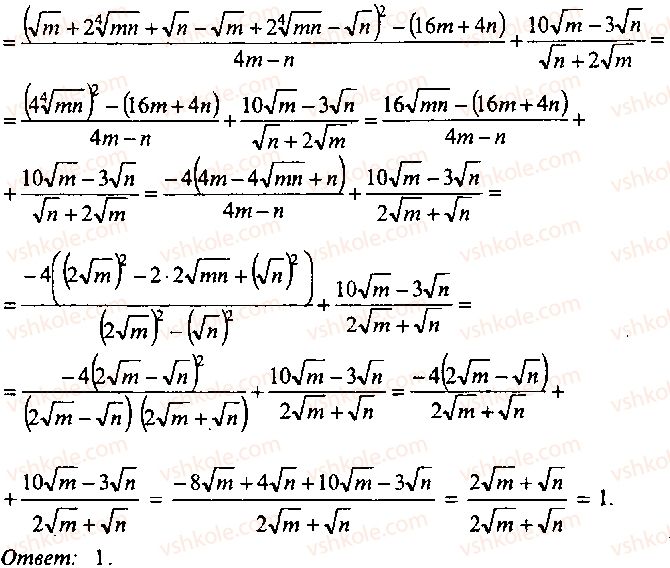 = ((√m + 2∜mn + √n − √m + 2∜mn − √n)² − (16m + 4n)) / (4m − n) + (10√m − 3√n) / (√n + 2√m) =
= ((4∜mn)² − (16m + 4n)) / (4m − n) + (10√m − 3√n) / (√n + 2√m) = (16√mn − (16m + 4n)) / (4m − n) +
+ (10√m − 3√n) / (√n + 2√m) = (−4(4m − 4√mn + n)) / (4m − n) + (10√m − 3√n) / (2√m + √n) =
= (−4((2√m)² − 2·2√mn + (√n)²)) / ((2√m)² − (√n)²) + (10√m − 3√n) / (2√m + √n) =
= (−4(2√m − √n)²) / ((2√m − √n)(2√m + √n)) + (10√m − 3√n) / (2√m + √n) = (−4(2√m − √n)) / (2√m + √n) +
+ (10√m − 3√n) / (2√m + √n) = (−8√m + 4√n + 10√m − 3√n) / (2√m + √n) = (2√m + √n) / (2√m + √n) = 1.
Ответ: 1.
vshkole.com